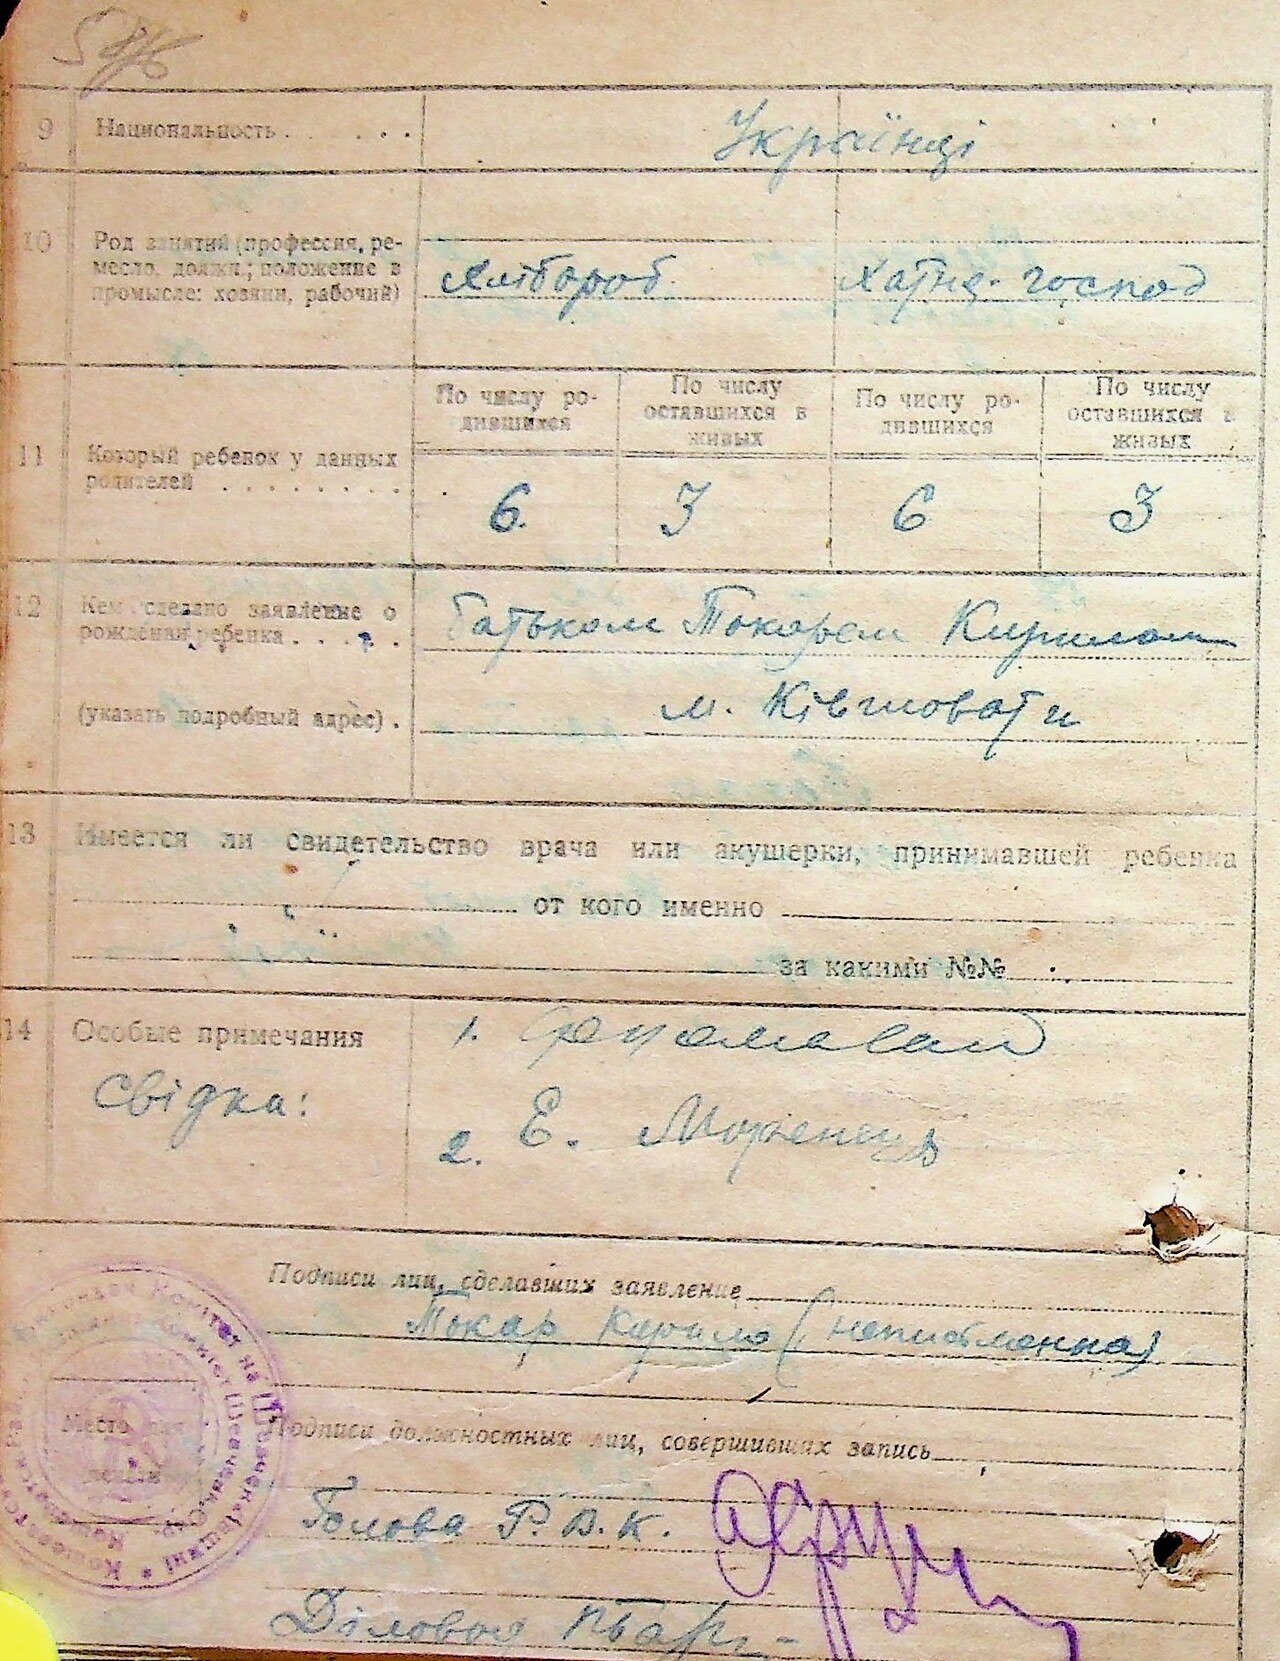 9 Национальность . . . . . . Українці
10 Род занятий (профессия, ре-
месло, должн.; положение в
промысле: хозяин, рабочий)
Хлібороб Хатнє-господ
По числу ро-
дившихся
По числу
оставшихся в
живых
По числу ро-
дившихся
По числу
оставшихся в
живых
11 Который ребенок у данных
родителей . . . . . . . .
6. 3 6 3
12 Кем сделано заявление о
рождении ребенка . . . . .
батьком Токарем Кирилом
(указать подробный адрес) .
м. Ківшовати
13 Имеется ли свидетельство врача или акушерки, принимавшей ребенка
от кого именно
за какими №№
14 Особые примечания
свідка:
1.
2. Е. Моренець
Подписи лиц, сделавших заявление
Токар Кирило (неписьменна)
Место
Подписи должностных лиц, совершивших запись
Голова Р.В.К.
Діловод